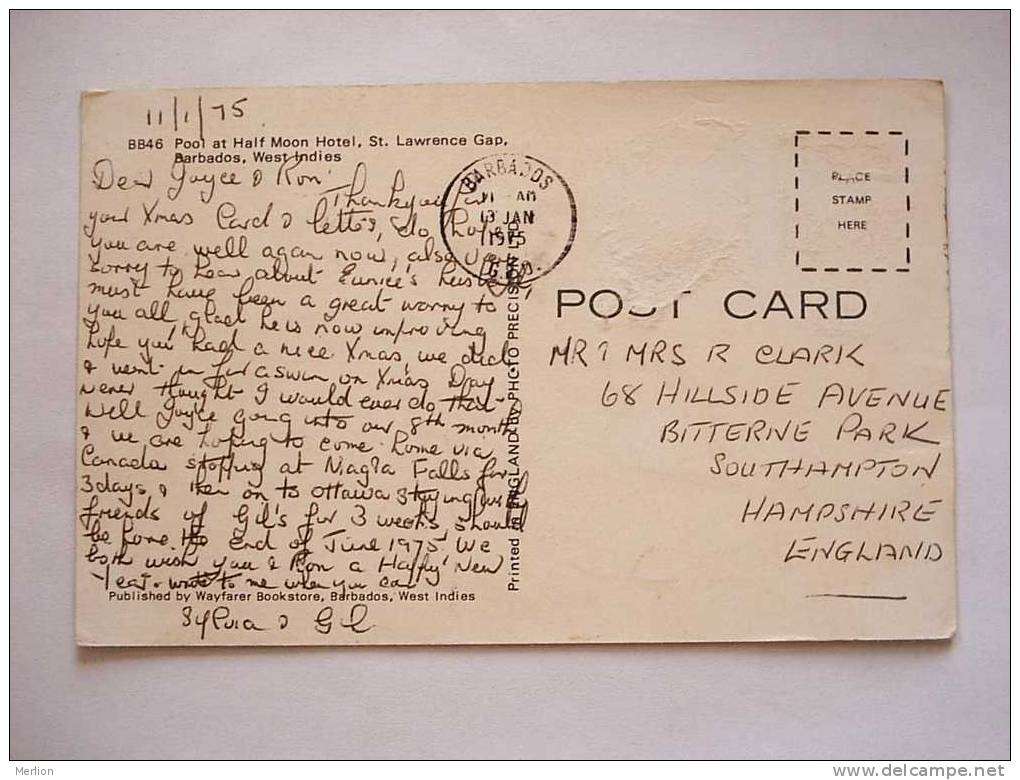 11/1/75
BB46 Pool at Half Moon Hotel, St. Lawrence Gap,
Barbados, West Indies
Dear Joyce & Ron
Thankyou for
your Xmas Card & letter, do hope
you are well again now, also very
sorry to hear about Eunice's husband,
must have been a great worry to
you all, glad he is now improving
hope you had a nice Xmas we did
& went in for a swim on Xmas Day
never thought I would ever do that
well Joyce going into our 8th month
& we are hoping to come home via
Canada stopping at Niagra Falls for
3 days & then on to Ottawa staying with
friends of Gil's for 3 weeks, should
be home end of June 1975 We
both wish you & Ron a Happy New
Year. write to me when you can
Published by Wayfarer Bookstore, Barbados, West Indies
Sylvia & Gil
Printed in ENGLAND BY PHOTO PRECISION LTD.
BARBADOS
11 - AM
13 JAN
1975
G.P.O.
PLACE
STAMP
HERE
POST CARD
MR & MRS R CLARK
68 HILLSIDE AVENUE
BITTERNE PARK
SOUTHAMPTON
HAMPSHIRE
ENGLAND
Merlion
www.delcampe.net